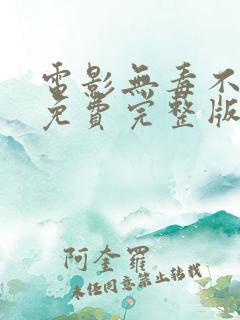 電影無毒不
免費完整版
阿奎羅
未经同意禁止转载